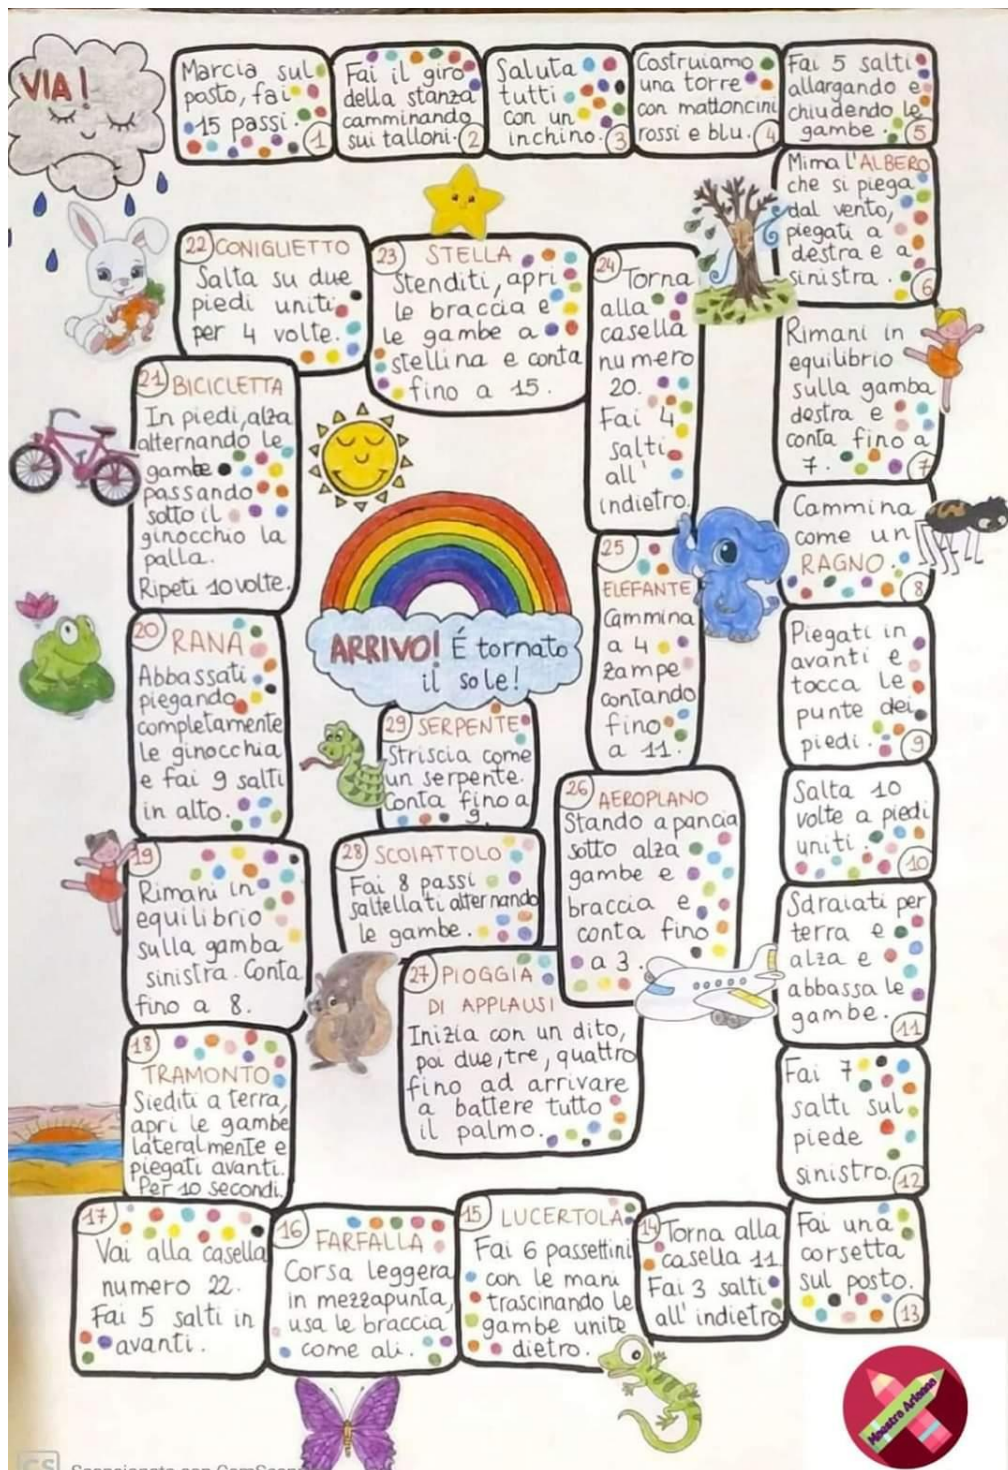 VIA!
Marcia sul
posto, fai
15 passi.
1
Fai il giro
della stanza
camminando
sui talloni.
2
Saluta
tutti
con un
inchino.
3
Costruiamo
una torre
con mattoncini
rossi e blu.
4
Fai 5 salti
allargando e
chiudendo le
gambe.
5
Mima l'ALBERO
che si piega
dal vento,
piegati a
destra e a
sinistra.
6
Rimani in
equilibrio
sulla gamba
destra e
conta fino a
7.
7
Cammina
come un
RAGNO.
8
Piegati in
avanti e
tocca le
punte dei
piedi.
9
Salta 10
volte a piedi
uniti.
10
Sdraiati per
terra e
alza e
abbassa le
gambe.
11
Fai 7
salti sul
piede
sinistro.
12
Fai una
corsetta
sul posto.
13
14
Torna alla
casella 11
Fai 3 salti
all'indietro
15 LUCERTOLA
Fai 6 passettini
con le mani
trascinando le
gambe unite
dietro.
16
FARFALLA
Corsa leggera
in mezzapunta,
usa le braccia
come ali.
17
Vai alla casella
numero 22.
Fai 5 salti in
avanti.
18
TRAMONTO
Siediti a terra,
apri le gambe
lateralmente e
piegati avanti.
Per 10 secondi.
19
Rimani in
equilibrio
sulla gamba
sinistra. Conta
fino a 8.
20 RANA
Abbassati
piegando
completamente
le ginocchia
e fai 9 salti
in alto.
21 BICICLETTA
In piedi, alza
alternando le
gambe
passando
sotto il
ginocchio la
palla.
Ripeti 10 volte.
22 CONIGLIETTO
Salta su due
piedi uniti
per 4 volte.
23 STELLA
Stenditi, apri
le braccia e
le gambe a
stellina e conta
fino a 15.
24
Torna
alla
casella
numero
20.
Fai 4
salti
all'
indietro.
25
ELEFANTE
Cammina
a 4
zampe
contando
fino
a 11.
26 AEROPLANO
Stando a pancia
sotto alza
gambe e
braccia e
conta fino
a 3.
27 PIOGGIA
DI APPLAUSI
Inizia con un dito,
poi due, tre, quattro
fino ad arrivare
a battere tutto
il palmo.
28 SCOIATTOLO
Fai 8 passi
saltellati alternando
le gambe.
29 SERPENTE
Striscia come
un serpente.
Conta fino a
9.
ARRIVO! É tornato
il sole!
Maestra Arianna
CS